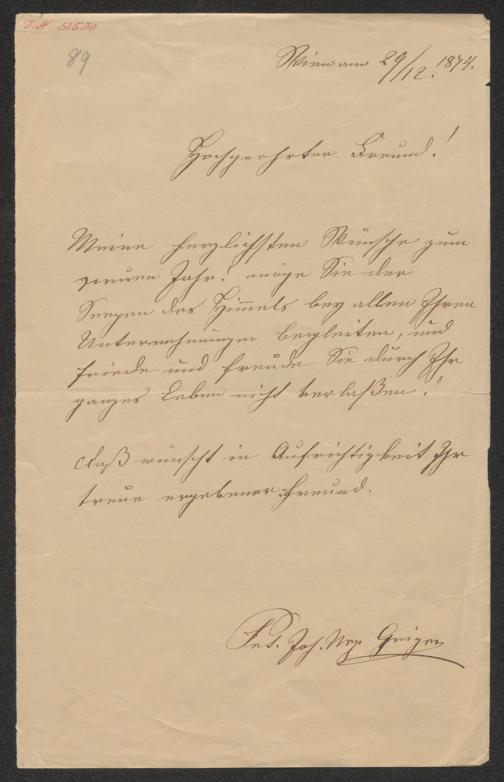 I.N. 51530
89
Wien am 29/12. 1874.
Hochgeehrter Freund!
Meine herzlichsten Wünsche zum
neuen Jahr! möge Sie der
Seegen des Himmels bey allen Ihren
Unternehmungen begleiten, und
friede und freude Sie durch Ihr
ganzes Leben nicht verlaßen!
daß wünscht in Aufrichtigkeit Ihr
treue ergebener Freund.
Joh. Nep.